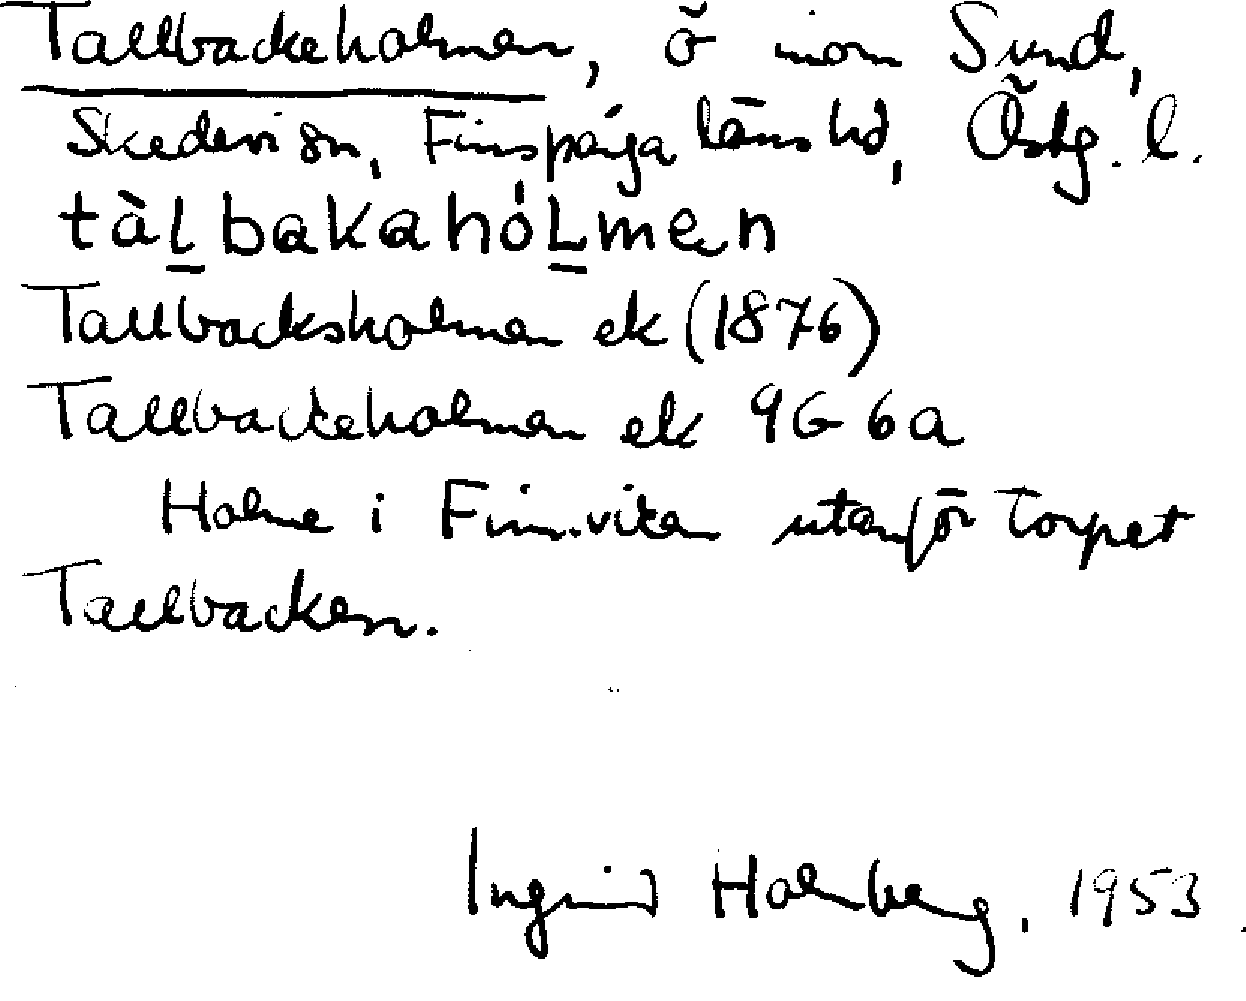 Tallbackeholmen, ö inom Sund,
Skedevi sn, Finspånga läns hd, Östg. l.
tàlbakahólmen
Tallbacksholmen ek (1876)
Tallbackeholmen ek 9G 6a
Holme i Finn.viken utanför torpet
Tallbacken.
Ingrid Holmberg. 1953.